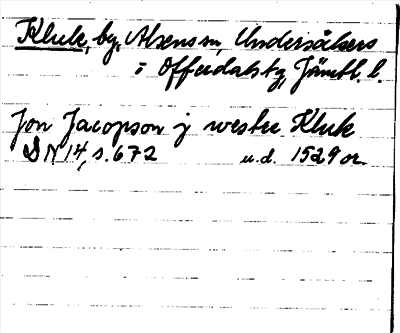 Kluk, by, Alsens sn, Undersåkers
i Offerdals tg, Jämtl. l.
Jon Jacopson j westre Kluk
DN 14, s. 672 u.d. 1529 or.